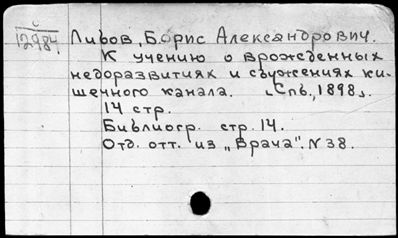 С
12984
Львов, Борис Александрович.
К учению о врожденных
недоразвитиях и съужениях ки-
шечного канала. [Спб., 1898].
14 стр.
Библиогр. стр. 14.
Отд. отт. из „Врача". N 38.